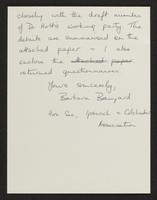 closely with the draft member
of Dr Holt's working party. The
details are summarised on the
attached paper - I also
enclose the attached paper
returned questionnaires.
Yours sincerely,
Barbara Banyard
Hon Sec, Ipswich & Colchester
Association